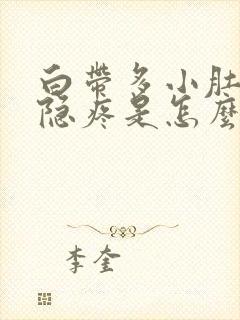 白带多小肚
隐疼是怎麽
李奎